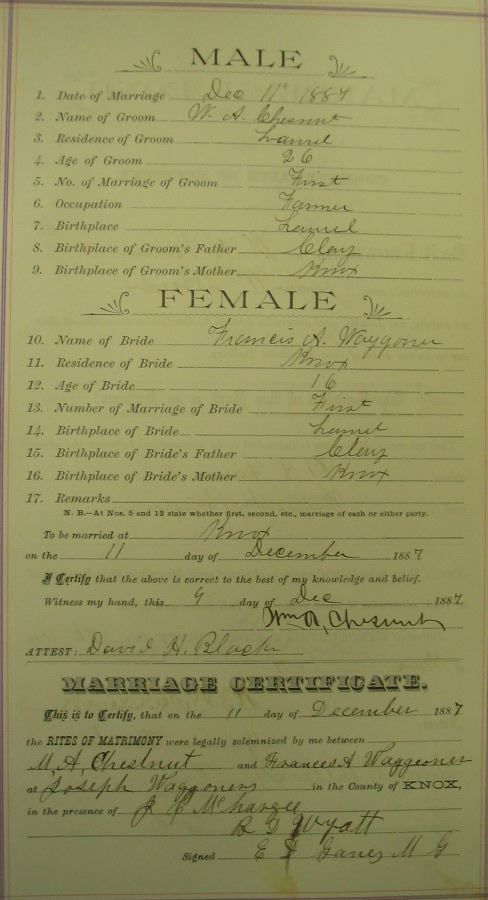 MALE
1. Date of Marriage Dec 11th 1887
2. Name of Groom W. A. Chesnut
3. Residence of Groom Laurel
4. Age of Groom 26
5. No. of Marriage of Groom First
6. Occupation Farmer
7. Birthplace Laurel
8. Birthplace of Groom's Father Clay
9. Birthplace of Groom's Mother Knox
FEMALE
10. Name of Bride Francis A. Waggoner
11. Residence of Bride Knox
12. Age of Bride 16
13. Number of Marriage of Bride First
14. Birthplace of Bride Laurel
15. Birthplace of Bride's Father Clay
16. Birthplace of Bride's Mother Knox
17. Remarks
N. B.—At Nos. 5 and 13 state whether first, second, etc., marriage of each or either party.
To be married at Knox
on the 11 day of December 1887
I Certify that the above is correct to the best of my knowledge and belief.
Witness my hand, this 9 day of Dec 1887
Wm A, Chesnut
ATTEST: David H. Black
MARRIAGE CERTIFICATE.
This is to Certify, that on the 11 day of December 1887
the RITES OF MATRIMONY were legally solemnized by me between
M, A, Chestnut and Frances A Waggeoner
at Joseph Waggoners in the County of KNOX,
in the presence of J C McHargee
Wyatt
Signed E M G